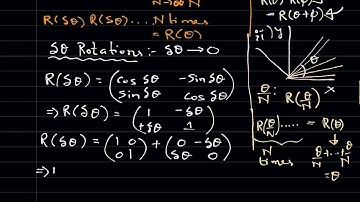 N→∞ N
R(δθ) R(δθ)... N times
= R(θ)
δθ Rotations :- δθ → 0
R(δθ) = (cos δθ -sin δθ
sin δθ cos δθ)
⇒ R(δθ) = (1 -δθ
+δθ 1)
R(δθ) = (1 0
0 1) + (0 -δθ
δθ 0)
⇒
= R(θ+φ)
y
θ
θ/N : R(θ/N) x
R(θ/N) ..... = R(θ)
N times
θ/N + ... + θ/N
= θ